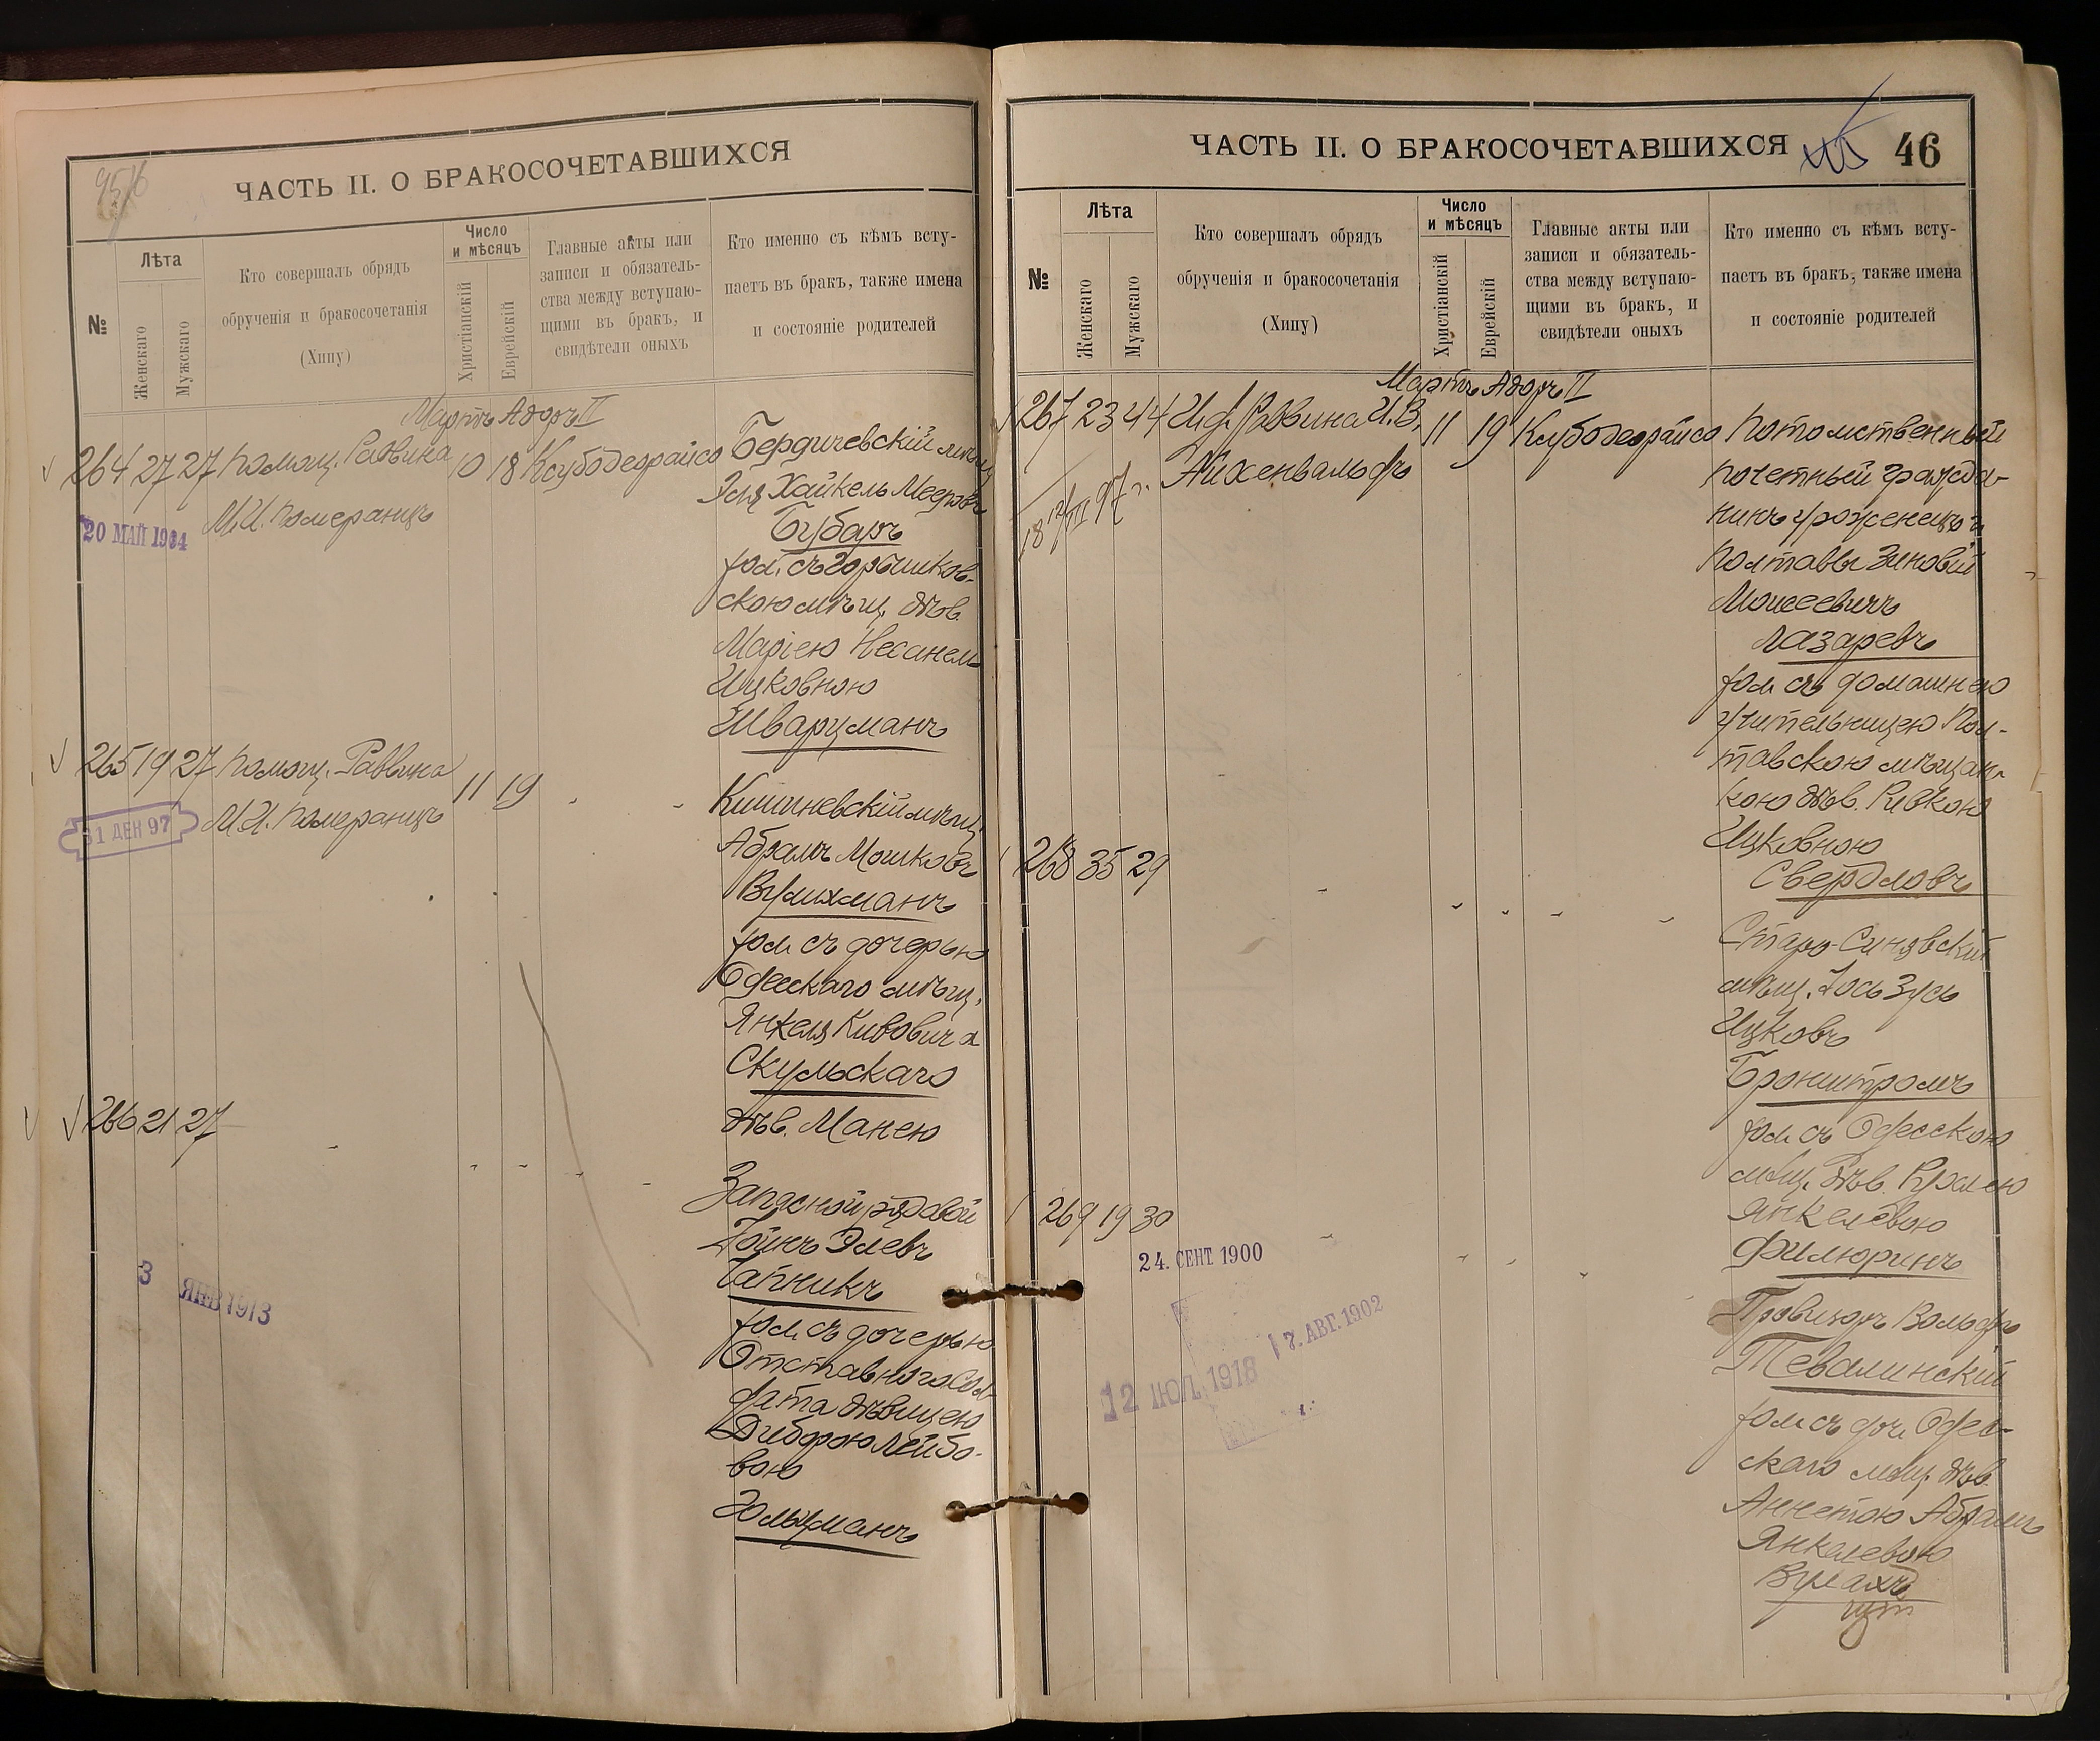 ЧАСТЬ II. О БРАКОСОЧЕТАВШИХСЯ
№
Лѣта
Женскаго
Мужскаго
Кто совершалъ обрядъ
обрученія и бракосочетанія
(Хипу)
Число
и мѣсяцъ
Христіанскій
Еврейскій
Главные акты или
записи и обязатель-
ства между вступаю-
щими въ бракъ, и
свидѣтели оныхъ
Кто именно съ кѣмъ всту-
паетъ въ бракъ, также имена
и состояніе родителей
Мартъ Адаръ II
264 27 27 Помощ. Раввина 10 18 Ксубодеорайсо Бердичевскій мѣщ.
М.И. Померанцъ
20 МАЙ 1904
Хайкель Мееровъ
Бубаръ
съ Горышков-
скою мѣщ. дѣв.
Маріею Несанель
Ицковною
Шварцманъ
265 19 27 Помощ. Раввина 11 19
М.И. Померанцъ
31 ДЕК 97
Кишиневскій мѣщ.
Абрамъ Мошковъ
Вулихманъ
съ дочерью
Одесскаго мѣщ.
Янкеля Кивовича
Скульскаго
дѣв. Манею
266 21 27
Запасной рядовой
Элевъ
Чапникъ
3 ЯНВ 1913
съ дочерью
Отставного Сол-
дата дѣвицею
Диборою Лейбо-
вою
Гольцманъ
ЧАСТЬ II. О БРАКОСОЧЕТАВШИХСЯ
46
№
Лѣта
Женскаго
Мужскаго
Кто совершалъ обрядъ
обрученія и бракосочетанія
(Хипу)
Число
и мѣсяцъ
Христіанскій
Еврейскій
Главные акты или
записи и обязатель-
ства между вступаю-
щими въ бракъ, и
свидѣтели оныхъ
Кто именно съ кѣмъ всту-
паетъ въ бракъ, также имена
и состояніе родителей
Мартъ Адаръ II
267 23 44 И.д. Раввина И.В. 11 19 Ксубодеорайсо Потомственный
Айхенвальдъ
18 12/III 97 г.
почетный гражда-
нинъ уроженецъ г.
Полтавы Зиновій
Моисеевичъ
Лазаревъ
съ домашнею
учительницею Пол-
тавскою мѣщан-
кою дѣв. Ривкою
Ицковною
Свердловъ
268 35 29
Старо-Синявскій
мѣщ. Іось Зусь
Ицковъ
Бронштромъ
съ Одесскою
мѣщ. дѣв. Рухлею
Янкелевою
Филюринъ
269 19 30
24. СЕНТ 1900
17. АВГ. 1902
12 ІЮЛ. 1918
Провизоръ Вольфъ
Тевалинскій
съ доч. Одес-
скаго мѣщ. дѣв.
Аннетою Абрамъ
Янкелевою
Вулахъ